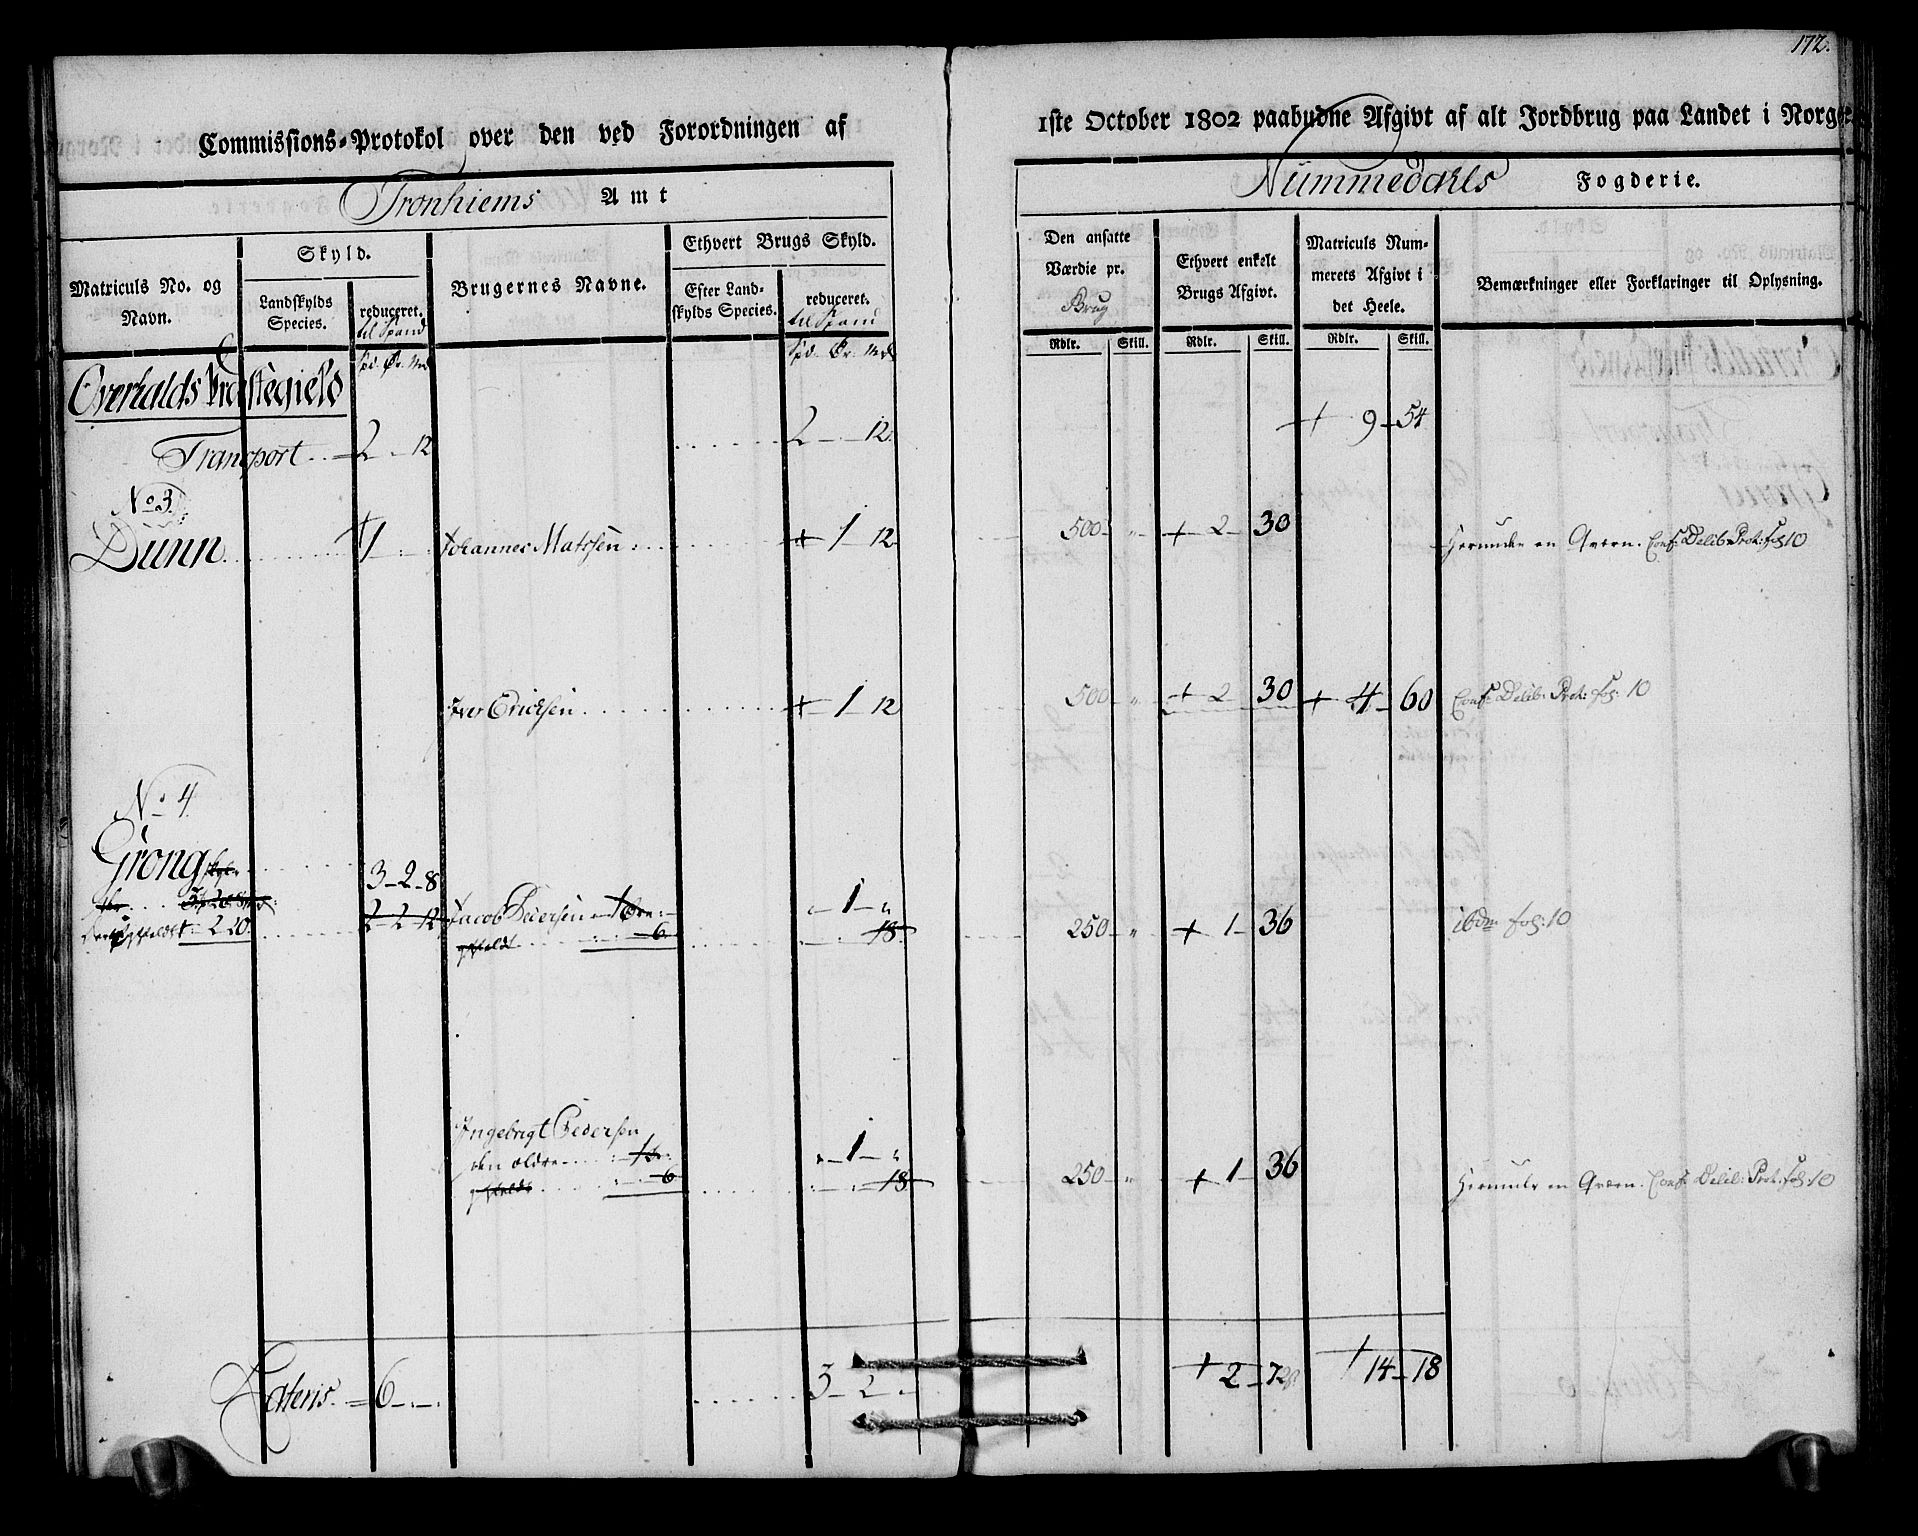 172.
Commissions-Protokol over den ved Forordningen af
1ste October 1802 paabudne Afgivt af alt Jordbrug paa Landet i Norge
Tronhiems Amt
Nummedahls Fogderie.
Matriculs No. og Navn.
Skyld.
Landskylds Species.
reduceret. til Spand
Brugernes Navne.
Ethvert Brugs Skyld.
Efter Landskylds Species.
reduceret. til Spand
Den ansatte Værdie pr. Brug
Ethvert enkelt Brugs Afgivt.
Matriculs Nummerets Afgivt i det Heele.
Bemærkninger eller Forklaringer til Oplysning.
Rdlr. Skill. Rdlr. Skill. Rdlr. Skill.
Overhalds Præstegield
Transport 2 - 12 2 - 12 + 9 - 54
No 3.
Dunn 1 Johannes Matssen + 1 12 500 " + 2 - 30 Herunder en Qværn. Conf: Delib: Prot: fol: 10
Iver Ericksen + 1 12 500 " + 2 30 + 4 - 60 Conf: Delib: Prot: fol: 10
No 4.
Grong
3 - 2 - 8
2 - 2 - 12 Jacob Pedersen - 1 - " 250 " + 1 - 36 ibdm fol: 10
2 20 6 18
Ingebrigt Pedersen
den ældre - 1 - " 250 " + 1 36 Herunder en Qværn. Conf: Delib: Prot: fol: 10
6 18
Lateris 6 3 - 2 - + 2 - 72 + 14 - 18